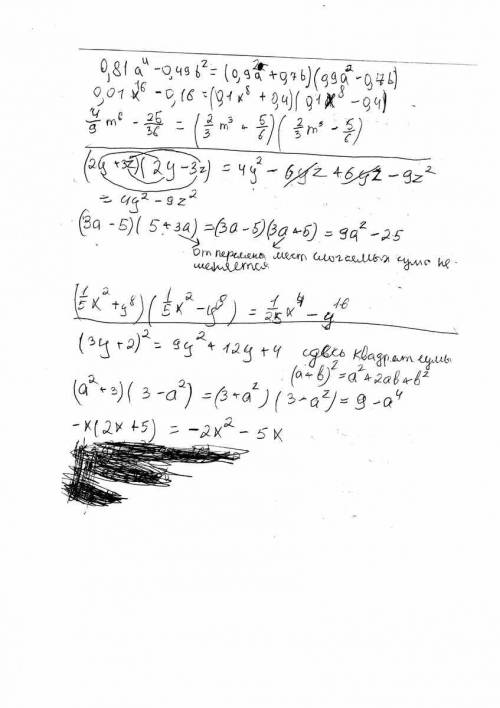 0,81 a⁴ - 0,49 b² = (0,9a² + 0,7b) (0,9a² - 0,7b)
0,01 x¹⁶ - 0,16 = (0,1x⁸ + 0,4) (0,1x⁸ - 0,4)
4/9 m⁶ - 25/36 = (2/3 m³ + 5/6) (2/3 m³ - 5/6)
(2y + 3z) (2y - 3z) = 4y² - 6yz + 6yz - 9z²
= 4y² - 9z²
(3a - 5) (5 + 3a) = (3a - 5) (3a + 5) = 9a² - 25
от перемены мест слогаемых сума не
меняется
(1/5 x² + y⁸) (1/5 x² - y⁸) = 1/25 x⁴ - y¹⁶
(3y + 2)² = 9y² + 12y + 4 сдесь квадрат сумы
(a + b)² = a² + 2ab + b²
(a² + 3) (3 - a²) = (3 + a²) (3 - a²) = 9 - a⁴
-x (2x + 5) = -2x² - 5x